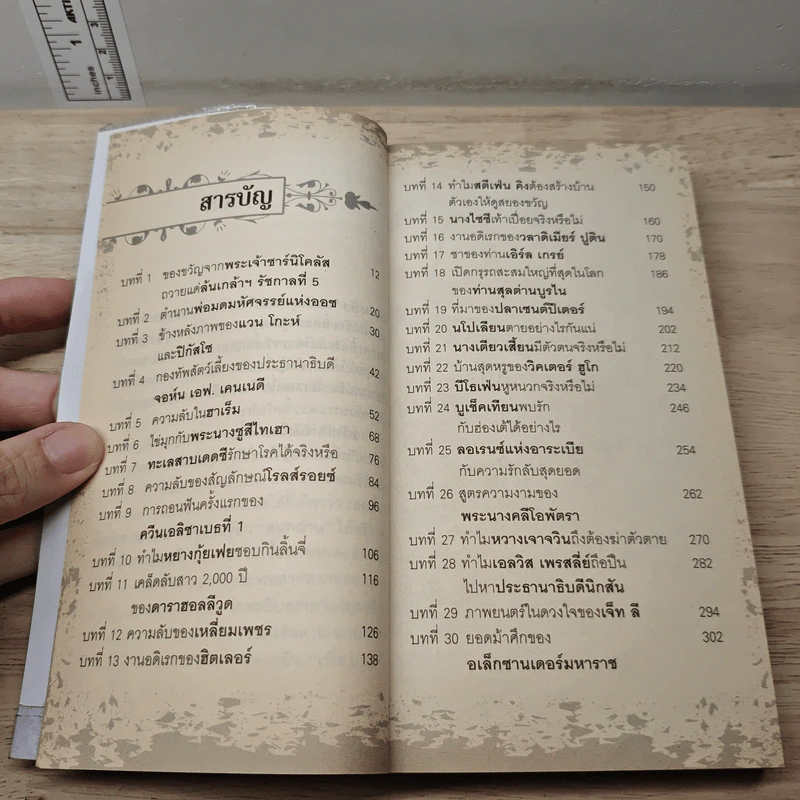 AKTI
inches
1
2
3
สารบัญ
บทที่ 1 ของขวัญจากพระเจ้าซาร์นิโคลัส 12
ถวายแด่ล้นเกล้าฯ รัชกาลที่ 5
บทที่ 2 ตำนานพ่อมดมหัศจรรย์แห่งออซ 20
บทที่ 3 ข้างหลังภาพของแวน โกะห์ 30
และปิกัสโซ
บทที่ 4 กองทัพสัตว์เลี้ยงของประธานาธิบดี 42
จอห์น เอฟ. เคนเนดี
บทที่ 5 ความลับในฮาเร็ม 52
บทที่ 6 ไข่มุกกับพระนางซูสีไทเฮา 68
บทที่ 7 ทะเลสาบเดดซีรักษาโรคได้จริงหรือ 76
บทที่ 8 ความลับของสัญลักษณ์โรลส์รอยซ์ 84
บทที่ 9 การถอนฟันครั้งแรกของ 96
ควีนเอลิซาเบธที่ 1
บทที่ 10 ทำไมหยางกุ้ยเฟยชอบกินลิ้นจี่ 106
บทที่ 11 เคล็ดลับสาว 2,000 ปี 116
ของดาราฮอลลีวูด
บทที่ 12 ความลับของเหลี่ยมเพชร 126
บทที่ 13 งานอดิเรกของฮิตเลอร์ 138
บทที่ 14 ทำไมสตีเฟ่น คิงต้องสร้างบ้าน 150
ตัวเองให้ดูสยองขวัญ
บทที่ 15 นางไซซีเท้าเปื่อยจริงหรือไม่ 160
บทที่ 16 งานอดิเรกของวลาดิเมียร์ ปูติน 170
บทที่ 17 ชาของท่านเอิร์ล เกรย์ 178
บทที่ 18 เปิดกรุรถสะสมใหญ่ที่สุดในโลก 186
ของท่านสุลต่านบรูไน
บทที่ 19 ที่มาของปลาเซนต์ปีเตอร์ 194
บทที่ 20 นโปเลียนตายอย่างไรกันแน่ 202
บทที่ 21 นางเตียวเสี้ยนมีตัวตนจริงหรือไม่ 212
บทที่ 22 บ้านสุดหรูของวิคเตอร์ ฮูโก 220
บทที่ 23 บีโธเฟ่นหูหนวกจริงหรือไม่ 234
บทที่ 24 บูเช็คเทียนพบรัก 246
กับฮ่องเต้ได้อย่างไร
บทที่ 25 ลอเรนซ์แห่งอาระเบีย 254
กับความรักลับสุดยอด
บทที่ 26 สูตรความงามของ 262
พระนางคลีโอพัตรา
บทที่ 27 ทำไมหวางเจาจวินถึงต้องฆ่าตัวตาย 270
บทที่ 28 ทำไมเอลวิส เพรสลี่ย์ถือปืน 282
ไปหาประธานาธิบดีนิกสัน
บทที่ 29 ภาพยนตร์ในดวงใจของเจ็ท ลี 294
บทที่ 30 ยอดม้าศึกของ 302
อเล็กซานเดอร์มหาราช